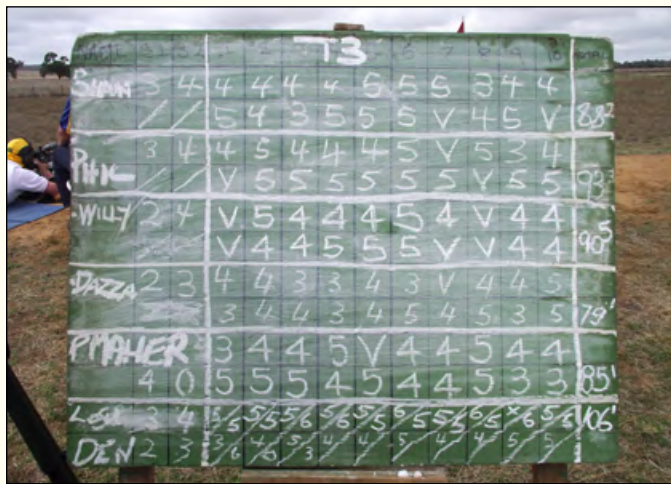 NAME S1 S2 1 2 T3 6 7 8 9 10 TOTAL
SHAUN 3 4 4 4 4 4 5 5 5 3 4 4
/ / 5 4 3 5 5 5 V 4 5 V 88²
PHIL 3 4 4 5 4 4 4 5 V 5 3 4
/ / V 5 5 5 5 5 5 V 5 5 93³
WILLY 2 4 V 5 4 4 4 5 4 V 4 4
V 4 4 5 5 5 V V 4 4 90⁵
DAZZA 2 3 4 4 3 3 4 3 V 4 4 5
3 4 4 3 4 5 4 5 3 5 79¹
PMAHER 3 4 4 5 V 4 4 5 4 4
4 0 5 5 5 4 5 4 4 5 3 3 85¹
3 4 5/5 5/5 5/6 5/6 5/5 6/5 5/5 6/5 X/6 5/5 106¹
DEN 2 3 3/6 4/6 5/3 4 4 5 4 4 5 5